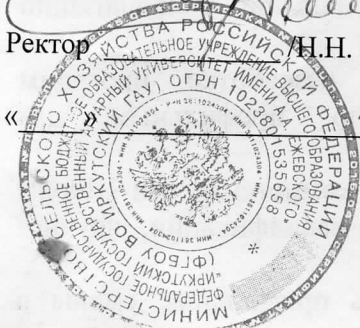 Ректор /Н.Н.
« »
МИНИСТЕРСТВО СЕЛЬСКОГО ХОЗЯЙСТВА РОССИЙСКОЙ ФЕДЕРАЦИИ
ФЕДЕРАЛЬНОЕ ГОСУДАРСТВЕННОЕ БЮДЖЕТНОЕ ОБРАЗОВАТЕЛЬНОЕ УЧРЕЖДЕНИЕ ВЫСШЕГО ОБРАЗОВАНИЯ
"ИРКУТСКИЙ ГОСУДАРСТВЕННЫЙ АГРАРНЫЙ УНИВЕРСИТЕТ ИМЕНИ А.А. ЕЖЕВСКОГО"
(ФГБОУ ВО ИРКУТСКИЙ ГАУ) ОГРН 1023801535658